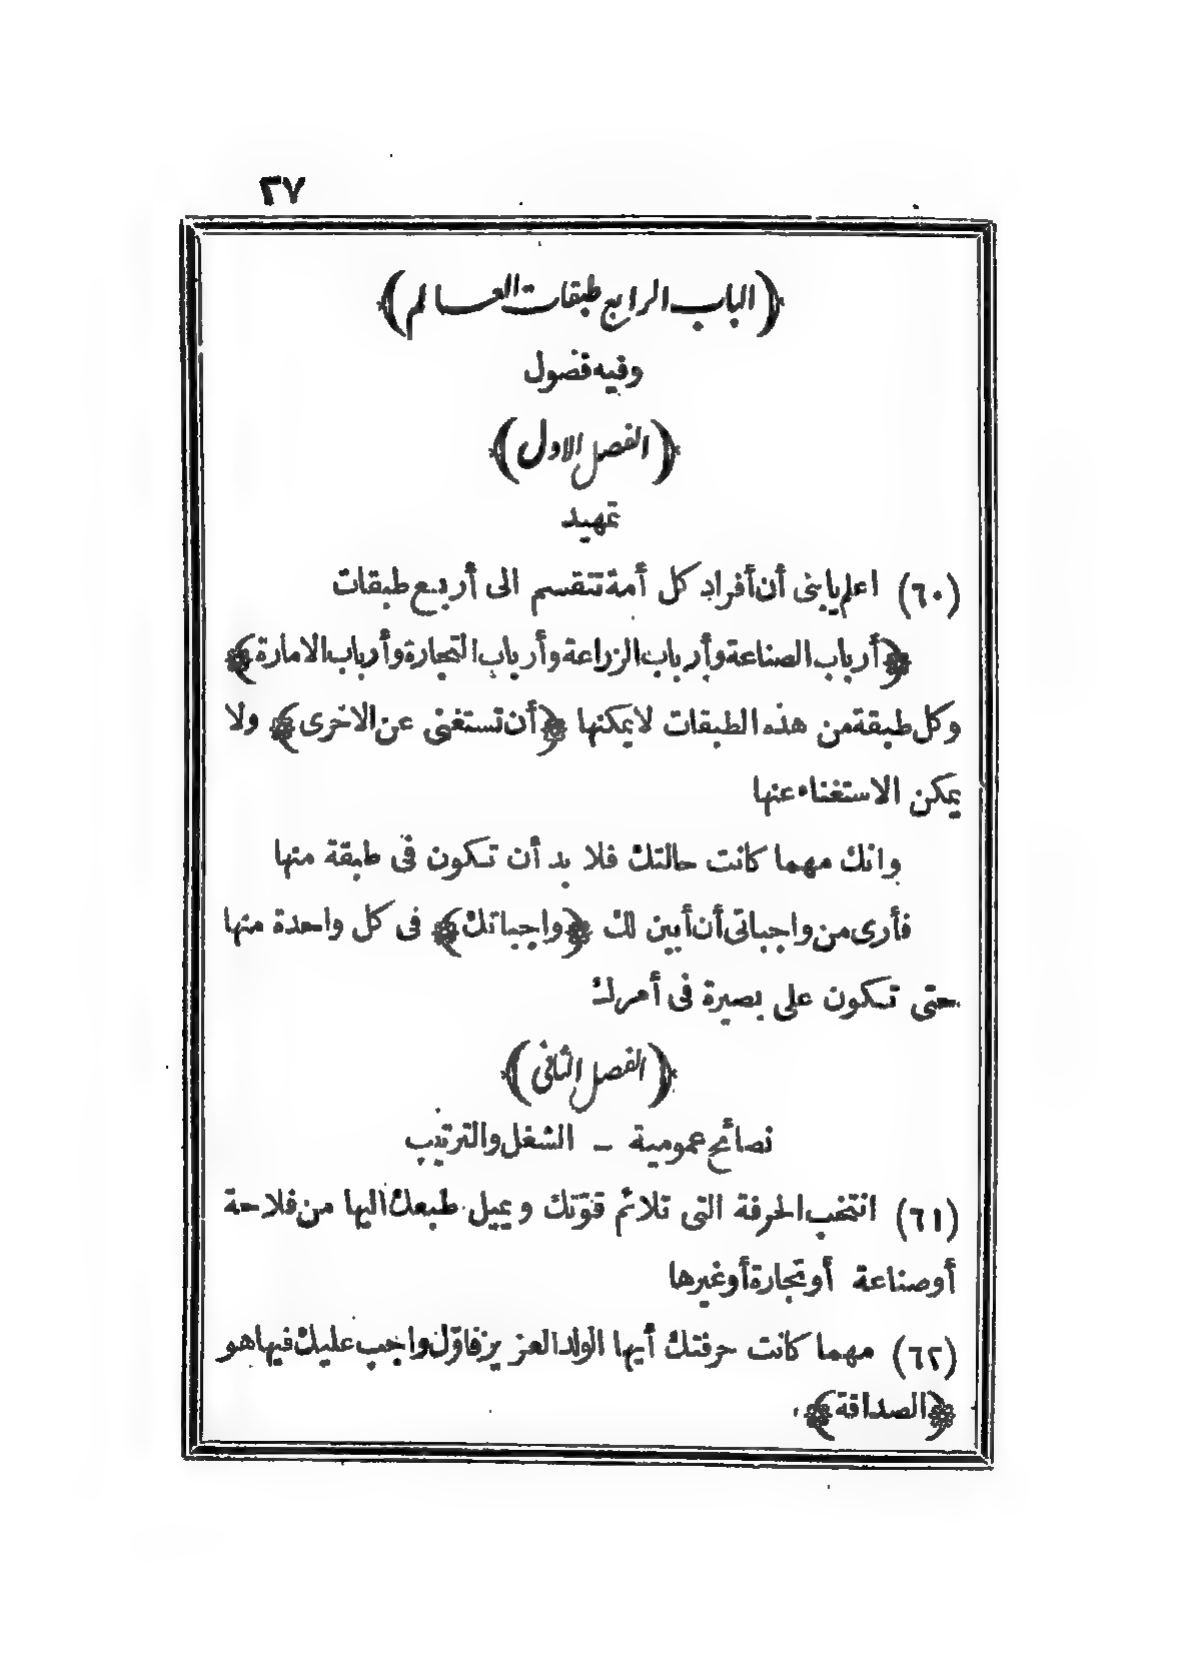 ٣٧
﴿الباب الرابع طبقات العـــالم﴾
وفيه فصول
﴿الفصل الاول﴾
تمهيد
(٦٠) اعلم يا بنى أن أفراد كل أمة تنقسم الى أربع طبقات
﴿أرباب الصناعة وأرباب الزراعة وأرباب التجارة وأرباب الامارة﴾
وكل طبقة من هذه الطبقات لا يمكنها ﴿أن تستغنى عن الاخرى﴾ ولا
يمكن الاستغناء عنها
وانك مهما كانت حالتك فلا بد أن تكون فى طبقة منها
فأرى من واجباتى أن أبين لك ﴿واجباتك﴾ فى كل واحدة منها
حتى تكون على بصيرة فى أمرك
﴿الفصل الثانى﴾
نصائح عمومية – الشغل والترتيب
(٦١) انتخب الحرفة التى تلائم قوّتك ويميل طبعك اليها من فلاحة
أو صناعة أو تجارة أو غيرها
(٦٢) مهما كانت حرفتك أيها الولد العزيز فاوّل واجب عليك فيها هو
﴿الصداقة﴾